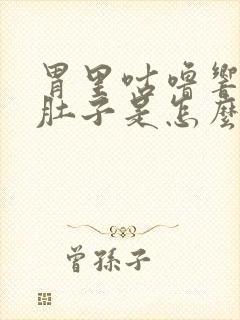 胃里咕噜響
肚子是怎麼
曾孫子